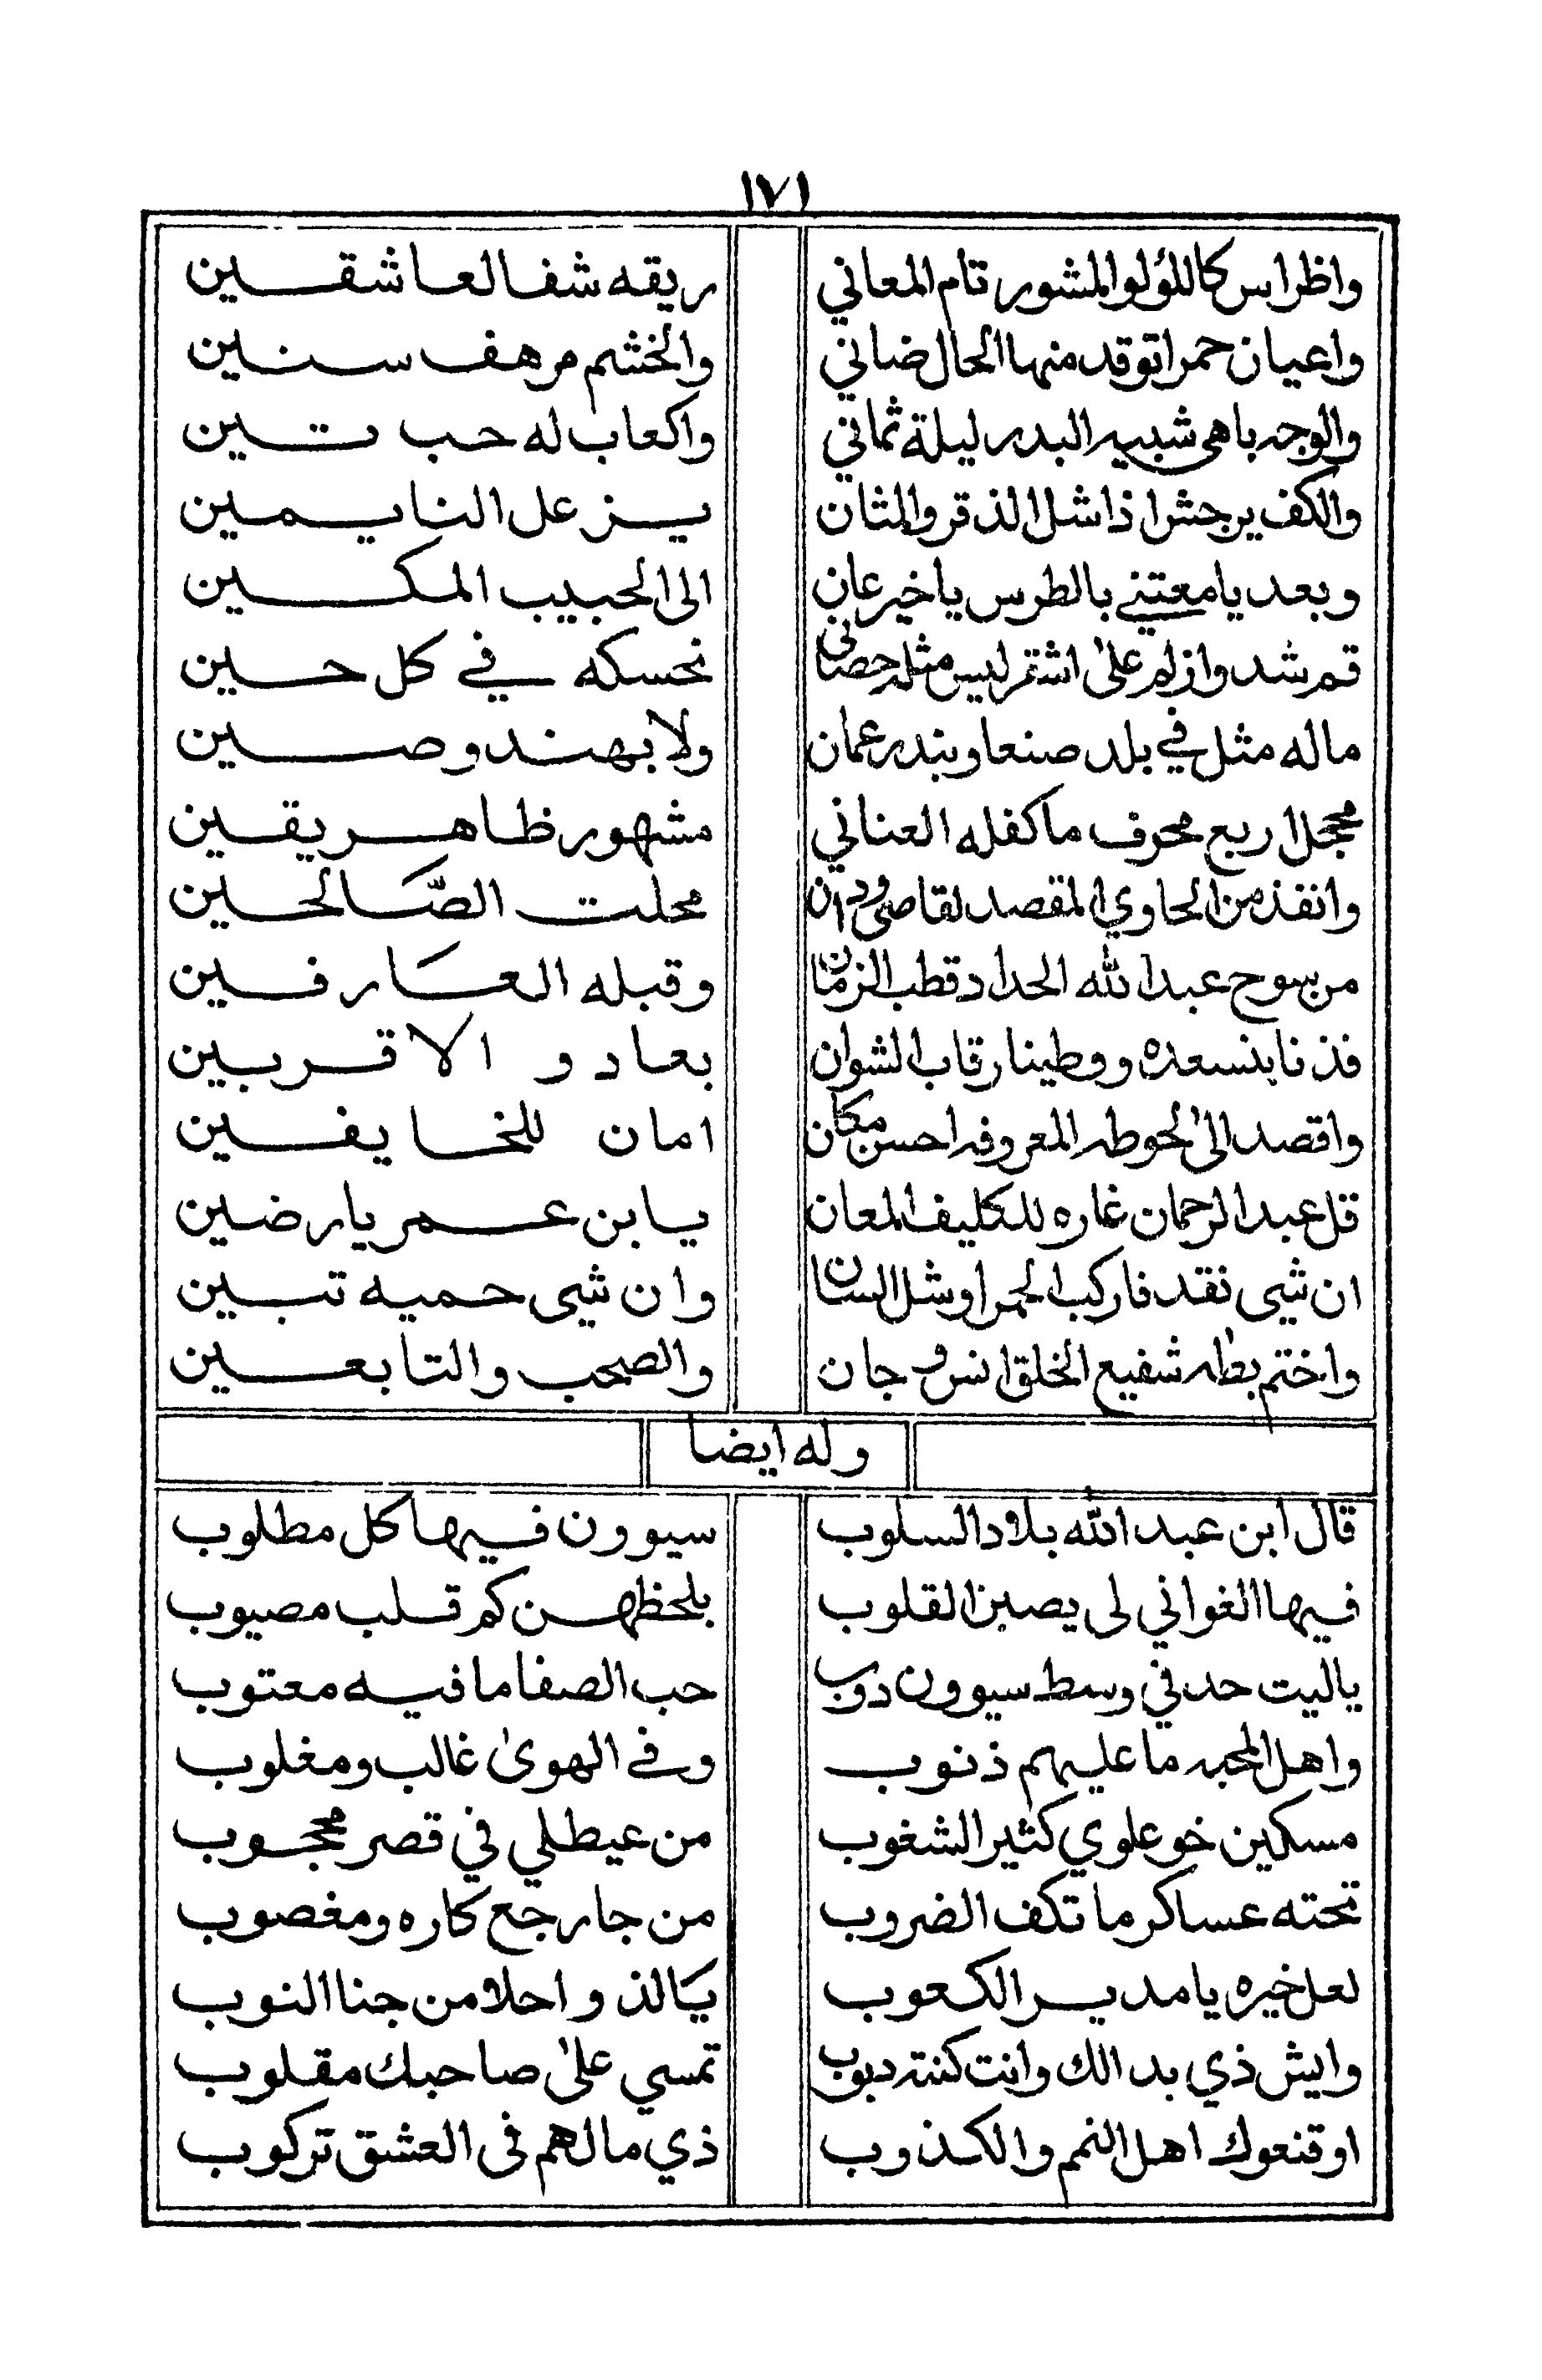 ١٧١
واظراس كاللؤلو المشور تام المعاني ريقه شفا لعاشقين
واعيان حمرا توقد منها الحال ضاني والخشم مرهف سنين
والوجه باهي شبيه البدر ليلة ثماني واكعاب له حب تين
والكف يرجش اذا شل الذقر والمثان يزعل النايمين
وبعد يا معتني بالطرس يا خير عان الى الحبيب المكين
قم شد وازلم على اشتر ليس مثله حصاني نحسكه في كل حين
ماله مثل في بلد صنعا وبندر عمان ولا بهند وصين
محجل اربع محرف ما كفله العناني مشهور ظاهر يقين
وانفذ من الحاوي المقصد لقاصي ودان محلت الصّالحين
من سوح عبدالله الحداد قطب الزمان وقبله العارفين
فذنا بنسعده ووطينا رقاب الشوان بعاد و الاقربين
واقصد الى الحوطه المعروفه احسن مكان امان للخايفين
قل عبدالرحمان غاره للكليف المعان يا بن عمر يارضين
ان شي نقد فاركب الحمرا وشل السنان وان شي حميه تبين
واختم بطه شفيع الخلق انس و جان والصحب والتابعين
وله ايضا
قال ابن عبدالله بلاد السلوب سيوون فيها كل مطلوب
فيها الغواني لي يصبن القلوب بلحظهن كم قلب مصيوب
ياليت حدني وسط سيوون دوب حب الصفا ما فيه معتوب
واهل المحبه ما عليهم ذنوب وفي الهوى غالب ومغلوب
مسكين خو علوي كثير الشغوب من عيطلي في قصر محجوب
تحته عساكر ما تكف الضروب من جا رجع كاره ومغصوب
لعل خيره يا مدير الكعوب يالذ واحلا من جنا النوب
وايش ذي بدالك وانت كنته دبوب تمسي على صاحبك مقلوب
او قنعوك اهل النم والكذوب ذي مالهم في العشق تركوب